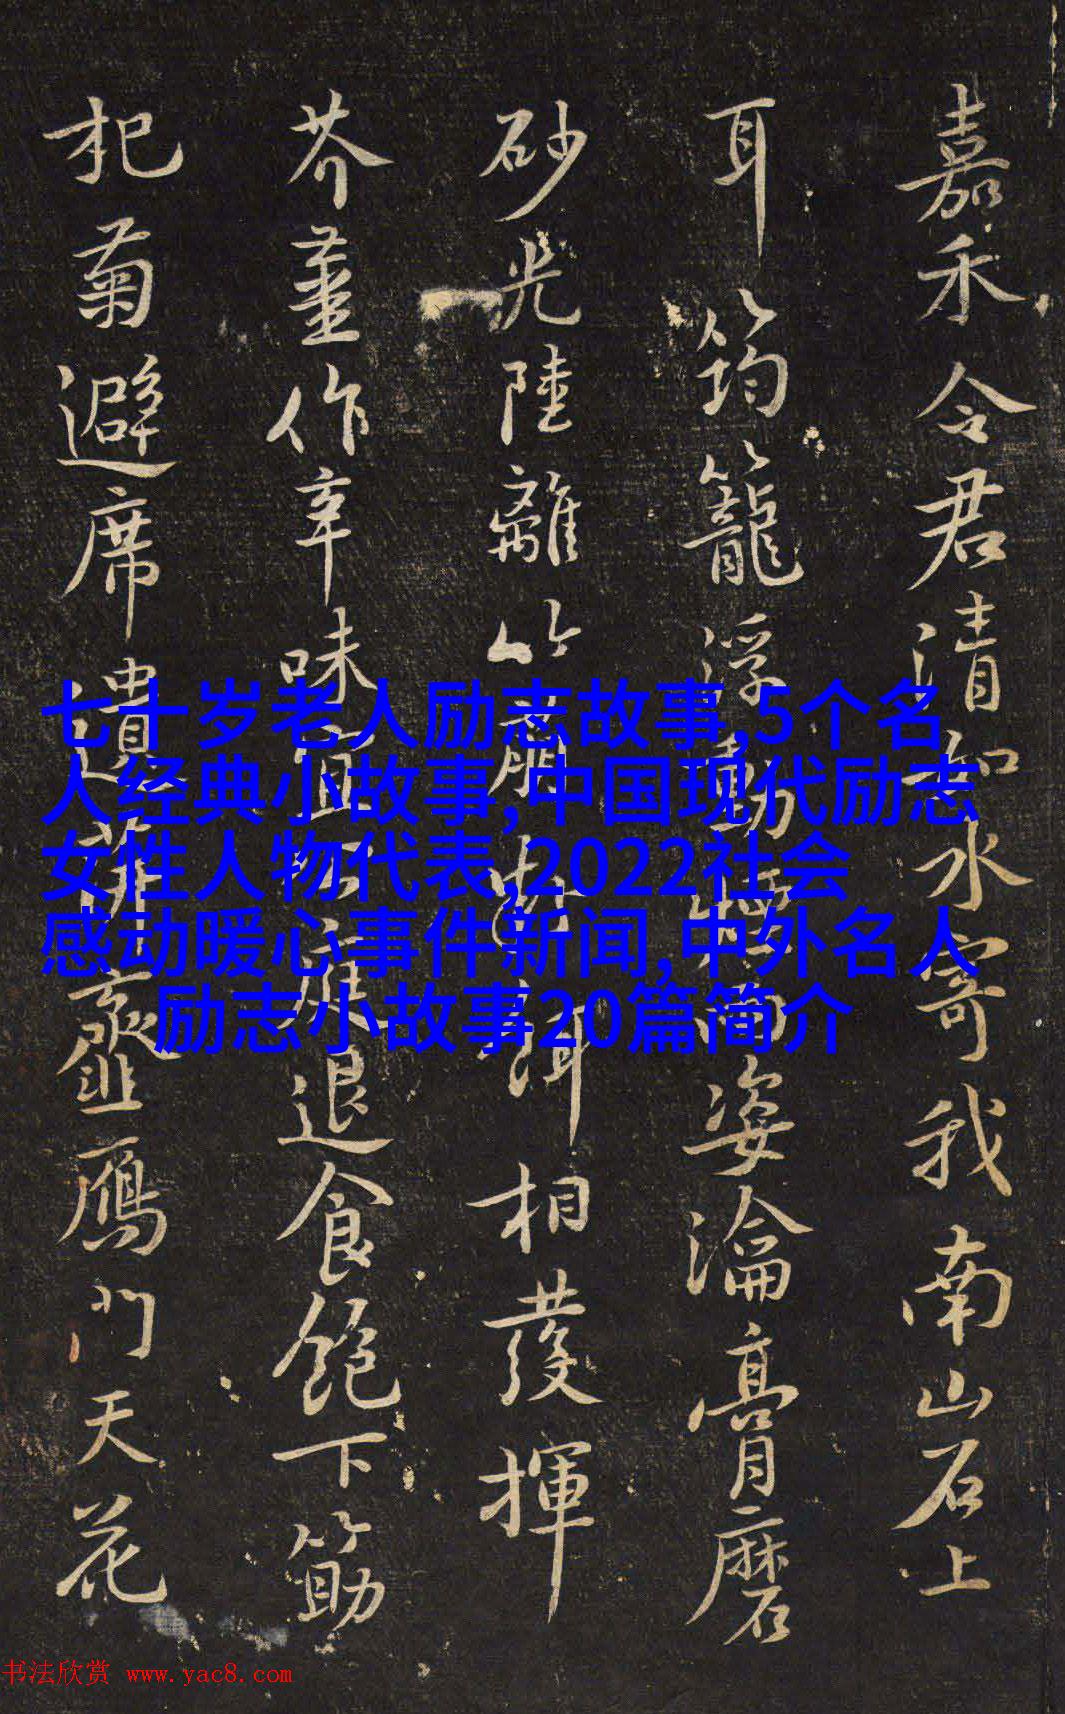 嘉禾令君清如水寄我南山石上
耳筠籠浮動姿瀹膏磨
砂光陸離竹萠相發揮
芥薑作辛味宜退食飽下筯
杞菊避席遺韲鴈門天花
七十岁老人励志故事,5个名
人经典小故事,中国现代励志
女性人物代表,2022社会
感动暖心事件新闻,中外名人
励志小故事20篇简介
书法欣赏 www.yac8.com